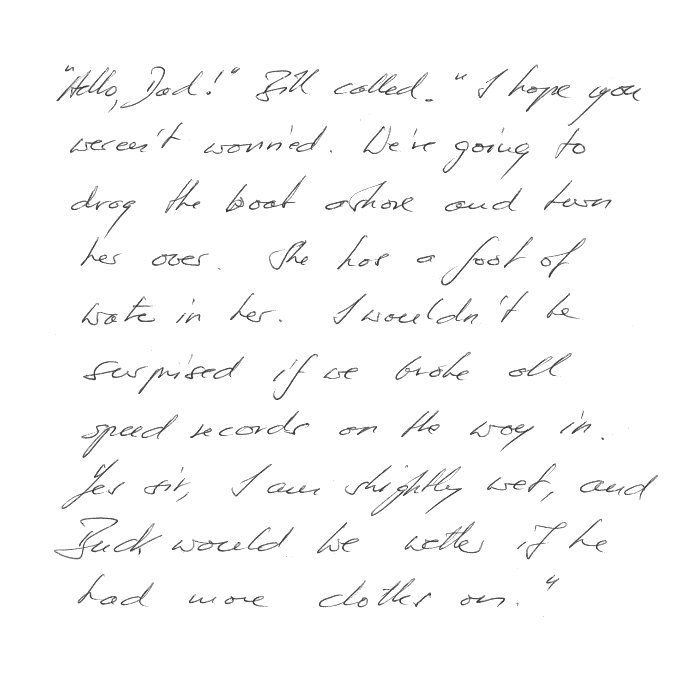 "Hello, Dad!" Bill called. "I hope you
weren't worried. We're going to
drag the boat ashore and turn
her over. She has a foot of
wate in her. I wouldn't be
surprised if we broke all
speed records on the way in.
Yes sir, I am slightly wet, and
Buck would be wetter if he
had more clothes on."